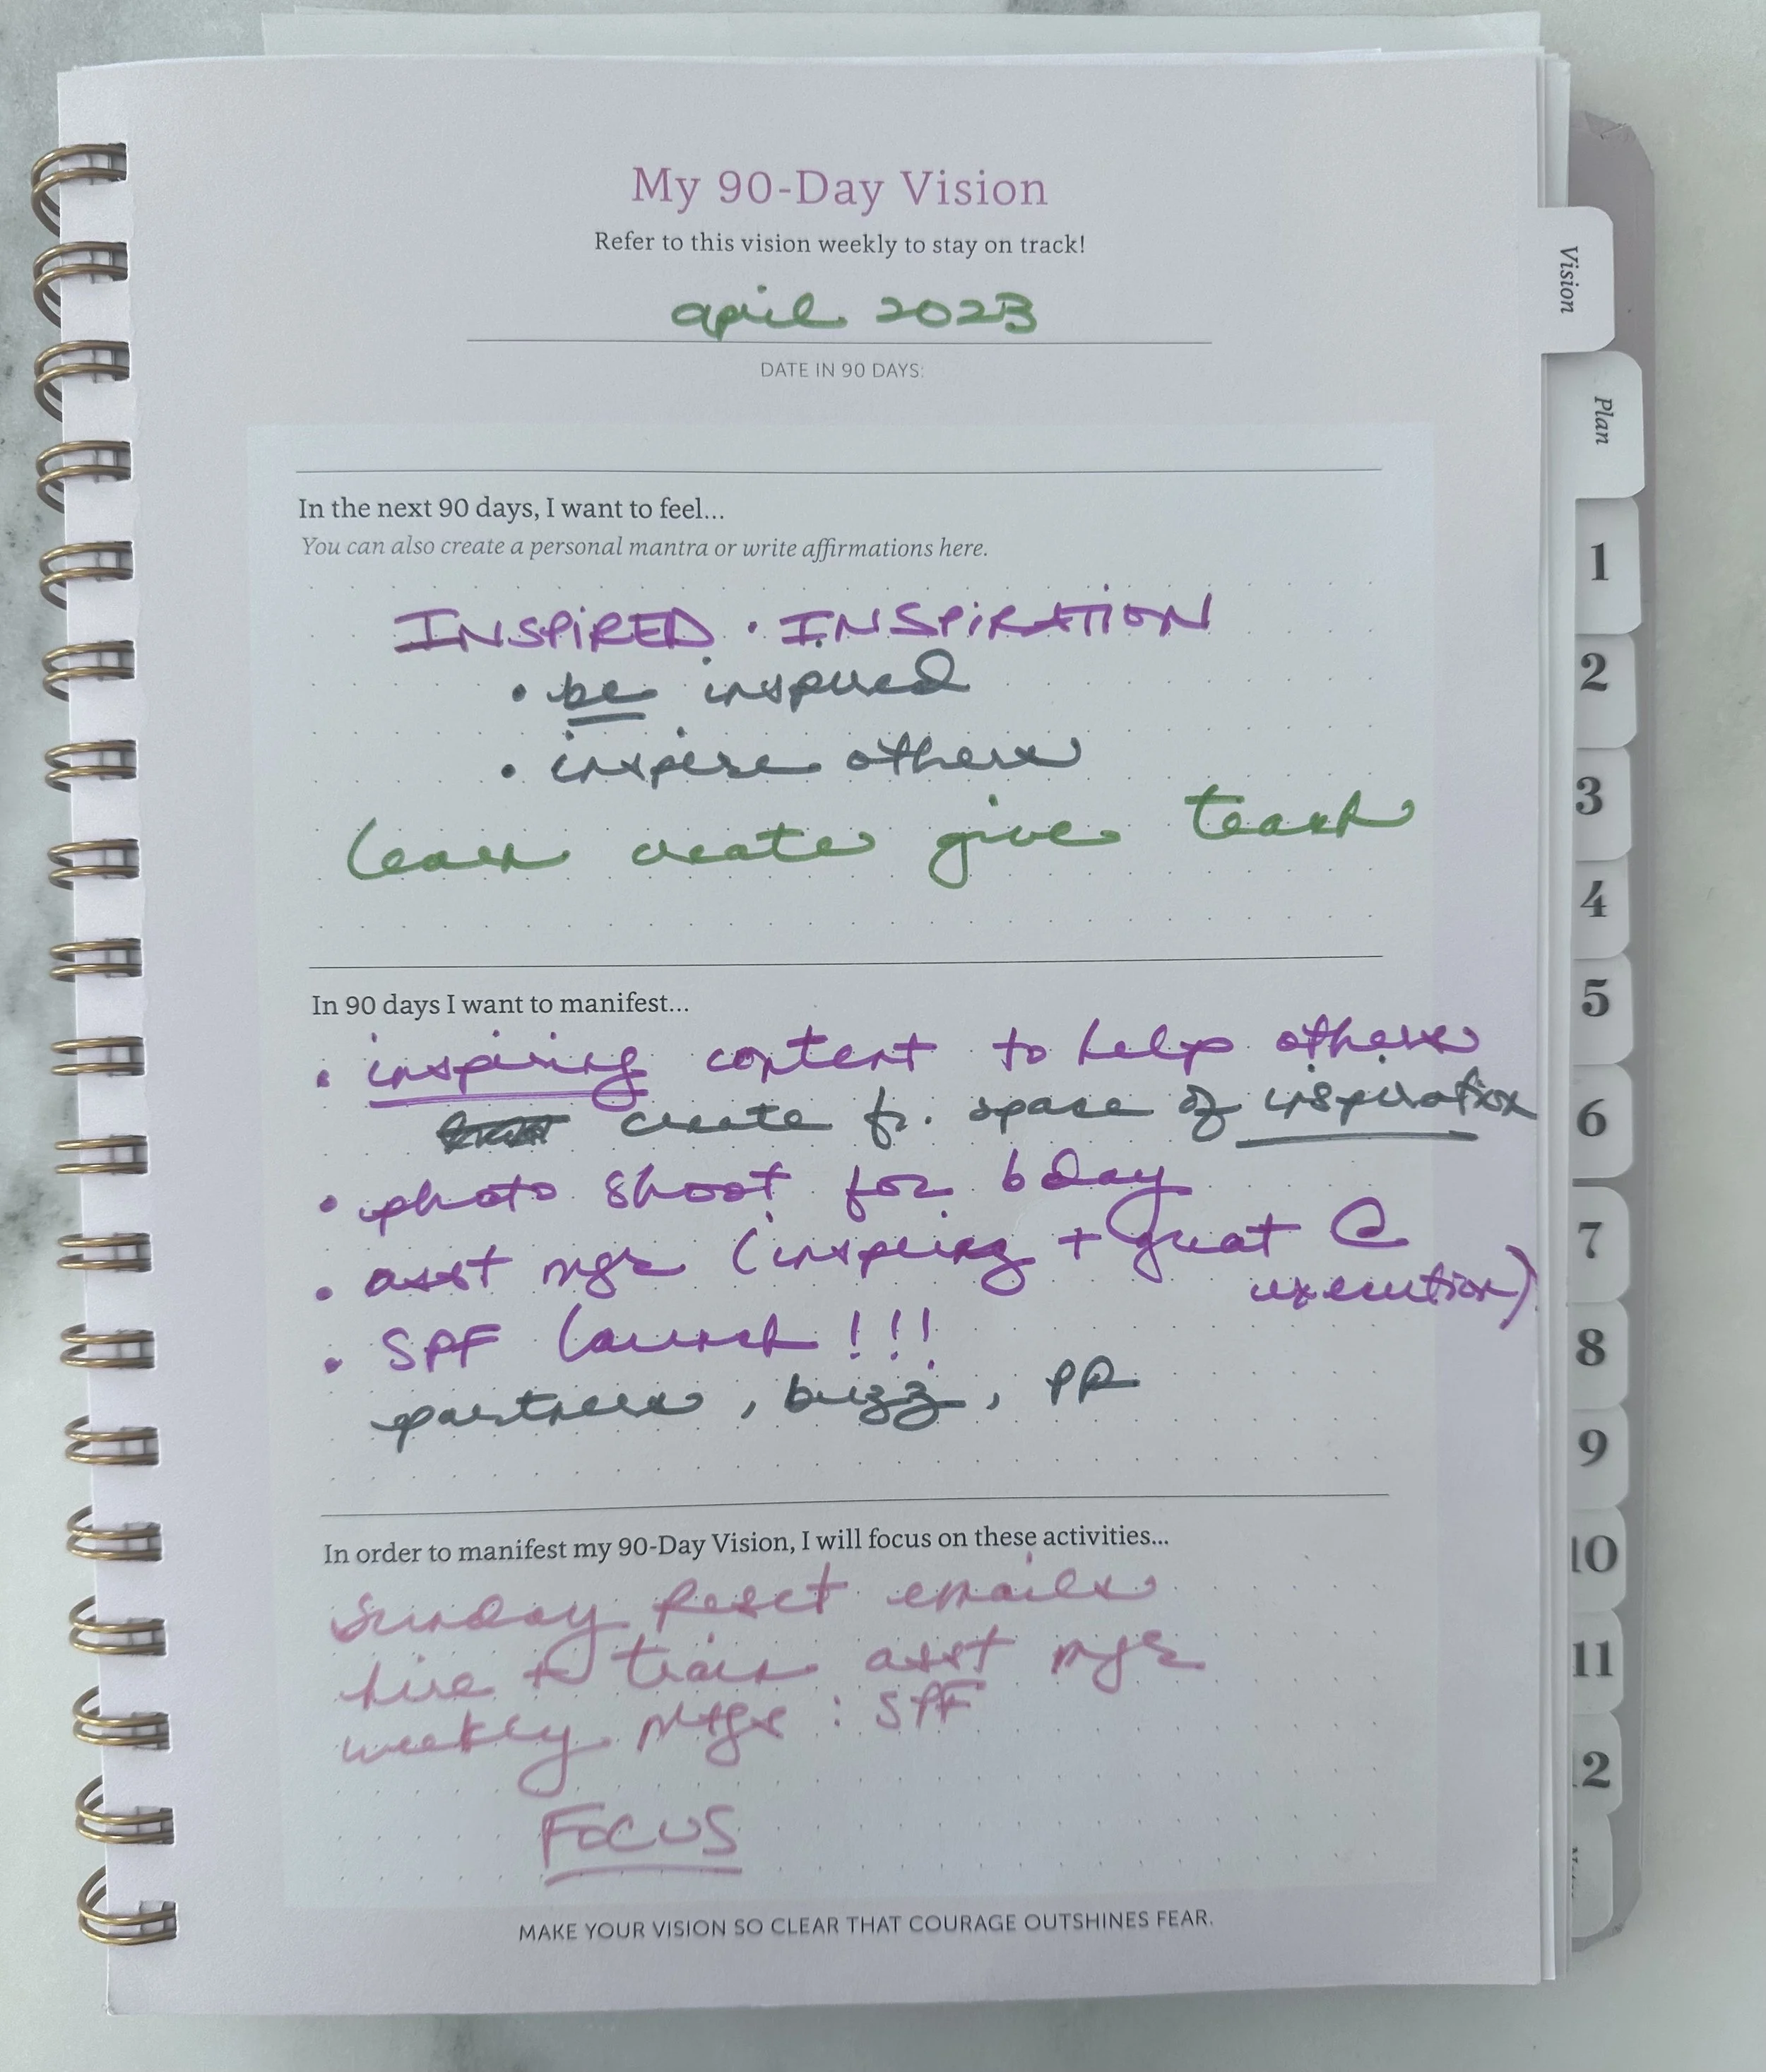 My 90-Day Vision
Refer to this vision weekly to stay on track!
april 2023
DATE IN 90 DAYS:
Vision
Plan
In the next 90 days, I want to feel...
You can also create a personal mantra or write affirmations here.
INSPIRED · INSPIRATION
• be inspired
• inspire others
learn create give teach
In 90 days I want to manifest...
• inspiring content to help others
create fr. space of inspiration
• photo shoot for bday
• asst mgr (inspiring + great @
execution)
• SPF launch!!!
partners, buzz, PR
In order to manifest my 90-Day Vision, I will focus on these activities...
Sunday Reset emails
hire + train asst mgr
weekly mtgs: SPF
FOCUS
MAKE YOUR VISION SO CLEAR THAT COURAGE OUTSHINES FEAR.
1
2
3
4
5
6
7
8
9
10
11
2